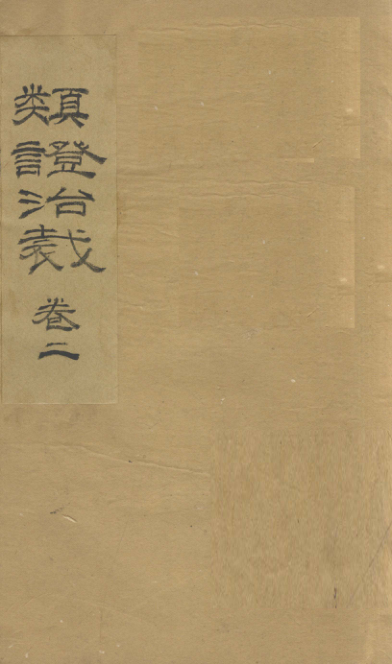 類證治裁
卷二